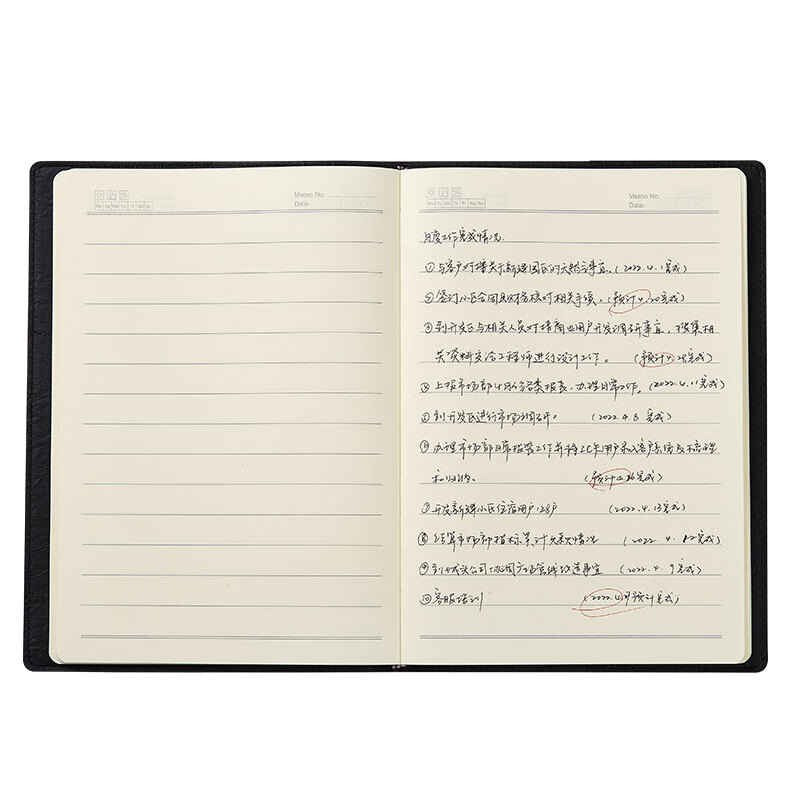 Memo No.
Date:
Mo Tu We Th Fr Sa Su
Memo No.
Date:
Mo Tu We Th Fr Sa Su
月度工作完成情况
①与客户对接关于新建园区的天然气事宜。(2022.4.1完成)
②签订小区合同及财务核对相关手续。(预计4.20完成)
③到开发区与相关人员对接商业用户开发调研事宜，搜集相
关资料交给工程师进行设计工作。(预计4.28完成)
④上报市场部4月份各类报表，办理日常工作。(2022.4.11完成)
⑤到开发区进行市场调研。(2022.4.8完成)
⑥办理市场部日常报装工作并将IC卡用户录入客户系统及梳理
和归纳。(预计4.26完成)
⑦开发新建小区住宿用户128户 (2022.4.13完成)
⑧结算市场部指标累计欠款情况 (2022.4.12完成)
⑨到城关公司协调广场管线改造事宜 (2022.4.9完成)
⑩客服培训 (2022.4月预计完成)